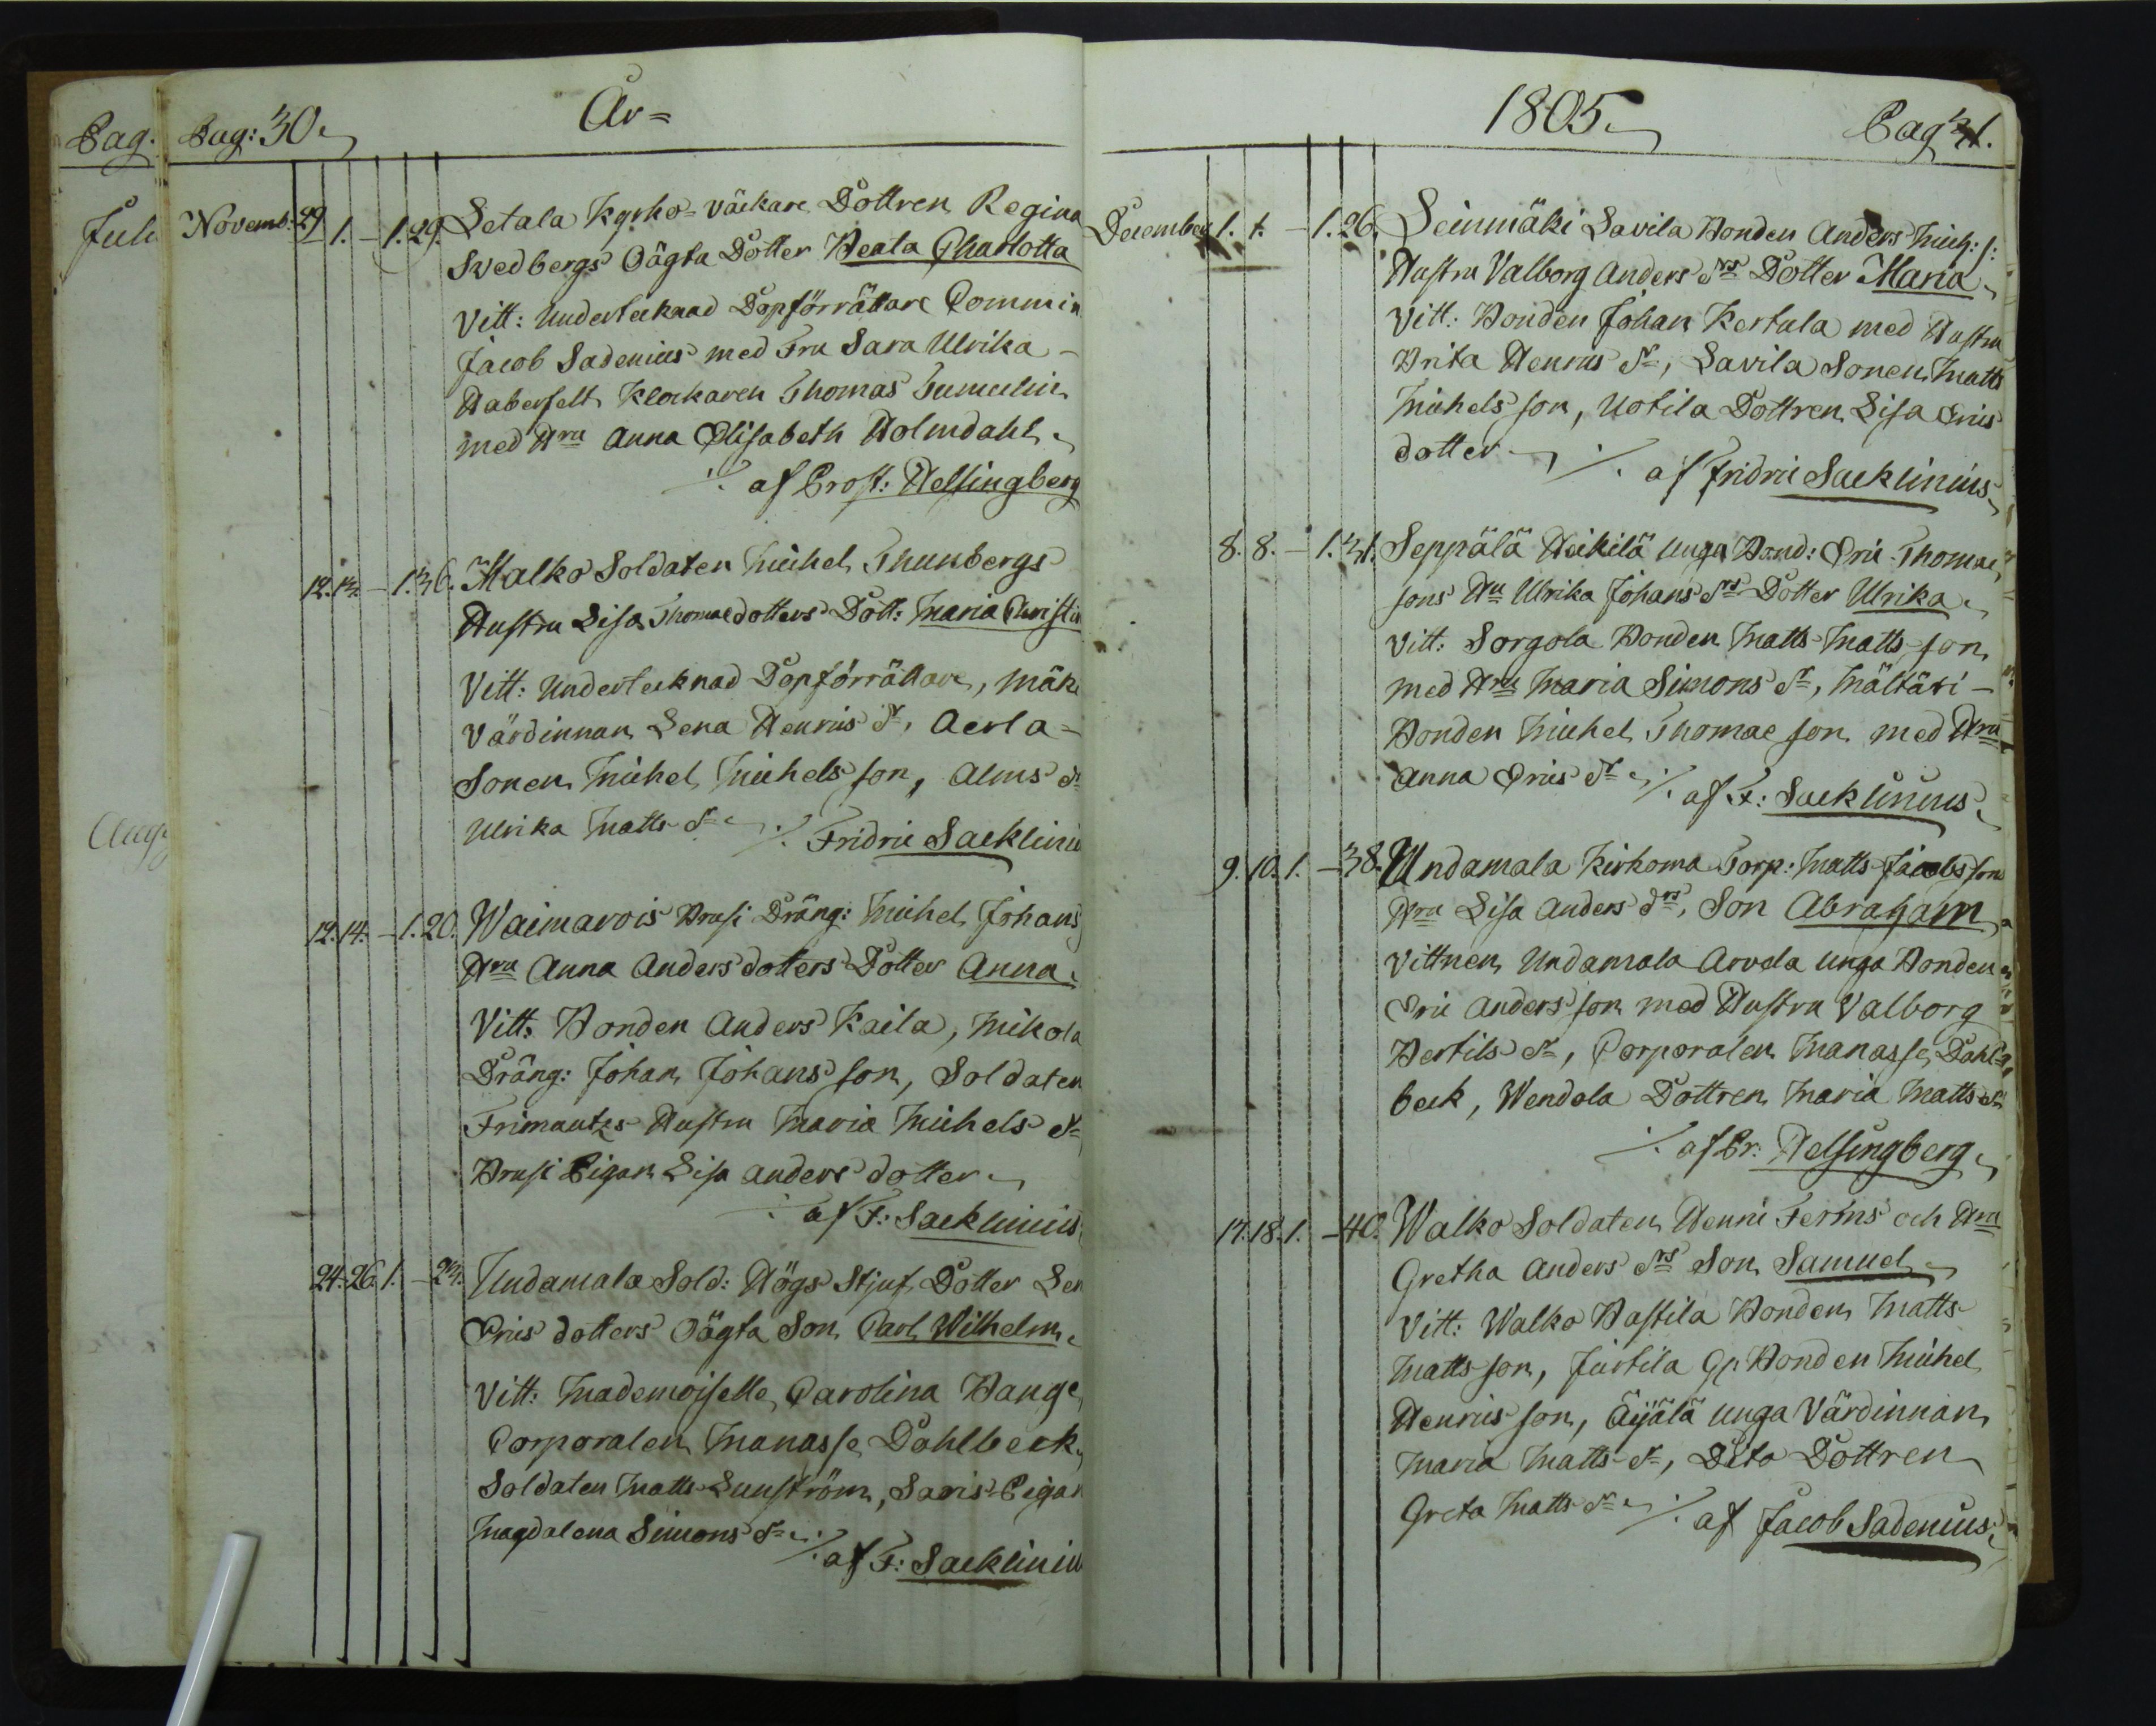 Pag.
Juli
Aug
Pag: 30.
År=
Novemb: 29 1. – 1. 29. Setala Kyrko-väckare Dottren Regina
Svedbergs Oägta Dotter Beata Charlotta
Vitt: Underteknad Dopförrättare Commin
Jacob Sadenius med Fru Sara Ulrika –
Haberfelt Klockaren Thomas Tumulin
med Hru Anna Elisabeth Holmdahl.
∕. af Prost: Helsingberg
12. 13. – 1. 36. Malko Soldaten Michel Thunbergs
Hustru Lisa Thomaedotters Dott: Maria Christin
Vitt: Underteeknad Dopförrättare, Mäki
Värdinnan Lena Henrics dr, Aerla-
Sonen Michel Michels son, Alms dr
Ulrika Matts dr ∕. Fridric Sacklinius
12. 14. – 1. 20. Waimarois Brusi Dräng: Michel Johans
Hru Anna Andersdotters Dotter Anna.
Vitt: Bonden Anders Kaila, Mikola
Dräng: Johan Johans son, Soldaten
Frimans Hustru Maria Michels dr
Brusi Pigan Lisa Anders dotter.
∕. af F: Sacklinius
24. 26. 1. – 23. Undamala Sold: Högs Stjuf Dotter Len
Erics dotters Oägta Son Carl Wilhelm.
Vitt: Mademoiselle Carolina Bange
Corporalen Manasse Dahlbeck,
Soldaten Matts Lunström, Saris Pigan
Magdalena Simons dr. ∕. af F: Sacklinius
1805.
Pag 31.
December 1. 1. – 1. 26. Seinmäki Savila Bonden Anders Mich: s:
Hustru Valborg Anders drs Dotter Maria.
Vitt: Bonden Johan Kertula med Hustru
Brita Henrics dr, Savila Sonen Matts
Michels son, Uotila Dottren Lisa Erics
dotter ∕. af Fridric Sacklinius.
8. 8. – 1. 31. Seppälä Heikilä unga Bond: Eric Thomae
sons Hu Ulrika Johans drs Dotter Ulrika.
Vitt: Sorgola Bonden Matts Matts son
med Hru Maria Simons dr, Mältäri –
Bonden Michel Thomae son med Hru
Anna Erics dr. ∕. af F: Sacklinius.
9. 10. 1. – 38. Undamala Kirkoma Torp: Matts Jacobs son
Hru Lisa Anders drs, Son Abraham
Vittnen Undamala Arvela unga Bonden
Eric Anders son med Hustru Valborg
Bertils dr, Corporalen Manasse Dahl-
beck, Wendela Dottren Maria Matts dr
∕. af Pr: Helsingberg.
17. 18. 1. – 40. Walko Soldaten Henric Ferms och Hru
Gretha Anders drs Son Samuel.
Vitt: Walko Bastila Bonden Matts
Matts son, Jurtila Gr Bonden Michel
Henrics son, Äijälä unga Värdinnan
Maria Matts dr, Dito Dottren
Greta Matts dr. ∕. af Jacob Sadenius.